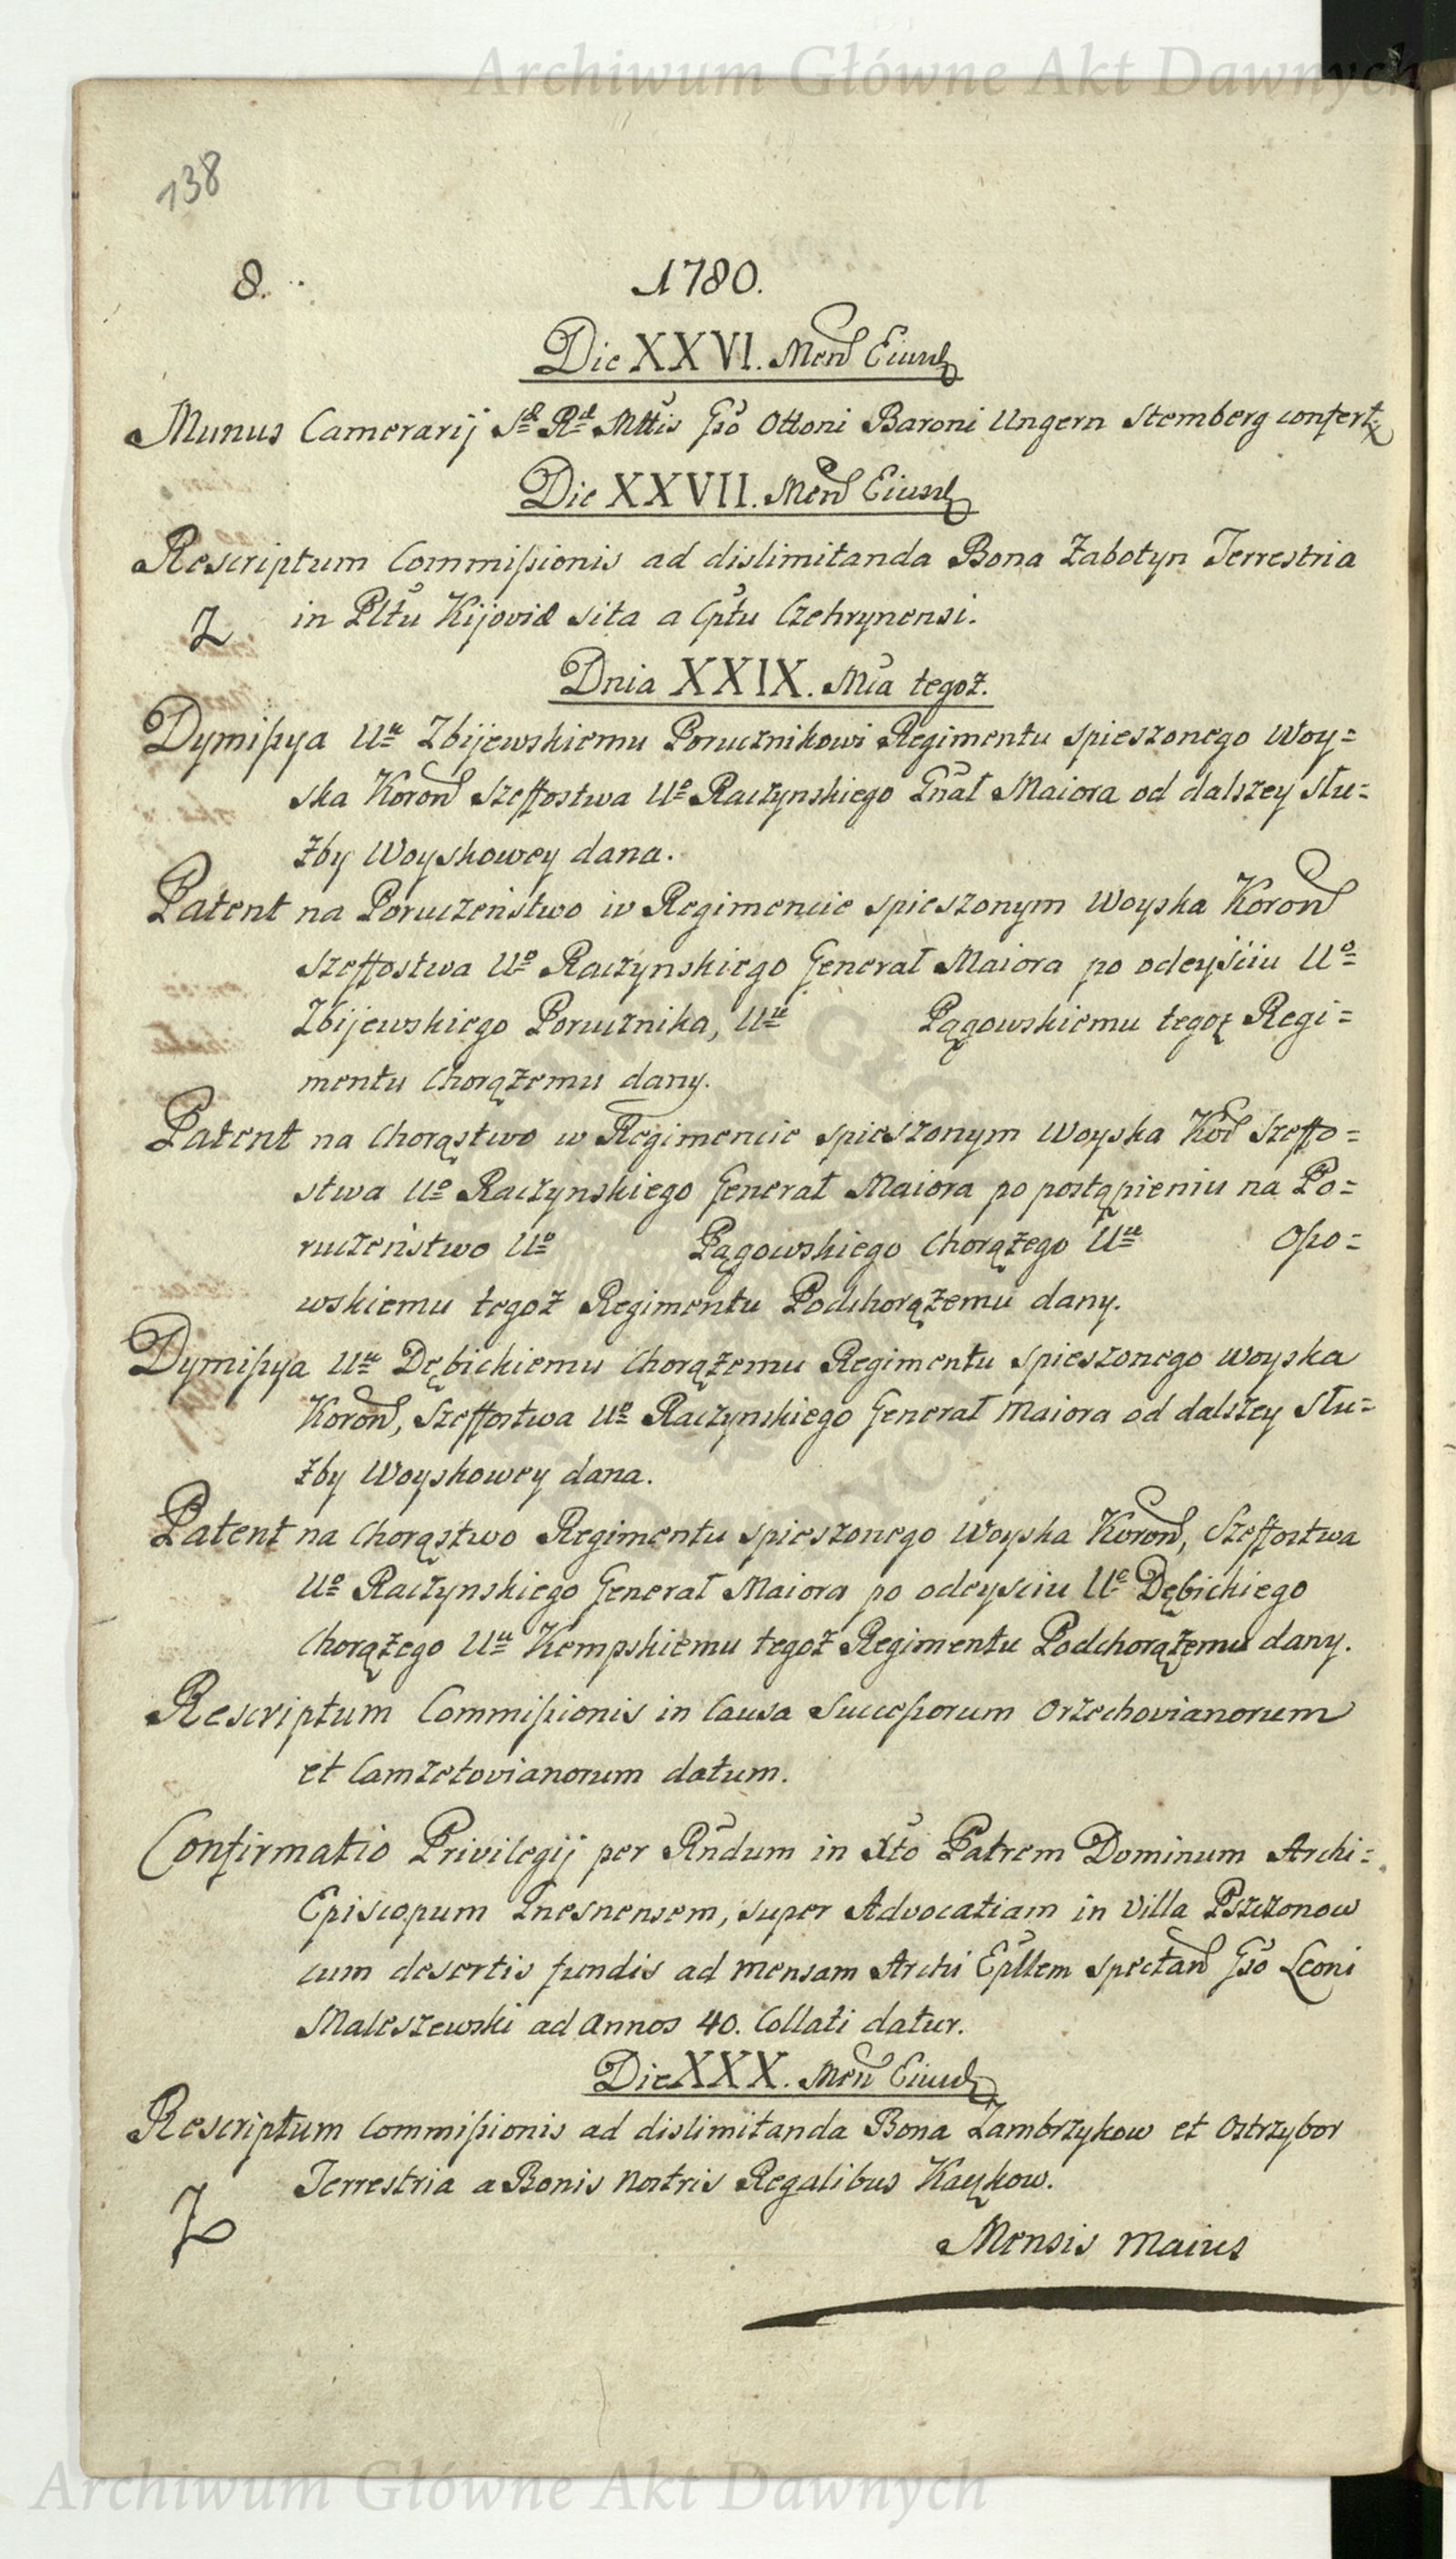 Archiwum Główne Akt Dawnych
138
8.
1780.
Die XXVI. Men Eiusd
Munus Camerarij Sæ Ræ Mttis Gso Ottoni Baroni Ungern Stemberg confert.
Die XXVII. Men Eiusd
Rescriptum Commißionis ad dislimitanda Bona Żabotyn Terrestria
Z in Pltu Kijoviæ sita a Cptu Czehrynensi.
Dnia XXIX. Mca tegoż.
Dymißya Uu Zbijewskiemu Porucznikowi Regimentu spieszonego Woy=
ska Koron Szeffostwa Uo Raczynskiego Gnał Maiora od dalszey słu=
żby Woyskowey dana.
Patent na Poruczeństwo w Regimencie spieszonym Woyska Koron
Szeffostwa Uo Raczynskiego Generał Maiora po odeyściu Uo
Zbijewskiego Porucznika, Uu Pągowskiemu tegoż Regi=
mentu Chorążemu dany.
Patent na Chorąstwo w Regimencie spieszonym Woyska Kor Szeffo=
stwa Uo Raczynskiego Generał Maiora po postąpieniu na Po=
ruczeństwo Uo Pągowskiego Chorążego Uu Opo=
wskiemu tegoż Regimentu Podchorążemu dany.
Dymißya Uu Dębickiemu Chorążemu Regimentu spieszonego woyska
Koron, Szeffostwa Uo Raczynskiego Generał Maiora od dalszey Słu=
żby Woyskowey dana.
Patent na Chorąstwo Regimentu spieszonego Woyska Koron, Szeffostwa
Uo Raczynskiego Generał Maiora po odeysciu Uo Dębickiego
Chorążego Uu Kempskiemu tegoż Regimentu Podchorążemu dany.
Rescriptum Commißionis in Causa Succeßorum Orzechovianorum
et Camzetovianorum datum.
Confirmatio Privilegij per Rndum in Xto Patrem Dominum Archi=
Episcopum Gnesnensem, super Advocatiam in Villa Pszczonow
cum desertis fundis ad mensam Archi Epllem spectan Gso Leoni
Maleszewski ad Annos 40. Collati datur.
Die XXX. Men Eiusd
Rescriptum Commißionis ad dislimitanda Bona Zambrzykow et Ostrzybor
Terrestria a Bonis Nostris Regalibus Kaczkow.
Z
Mensis Maius
Archiwum Główne Akt Dawnych